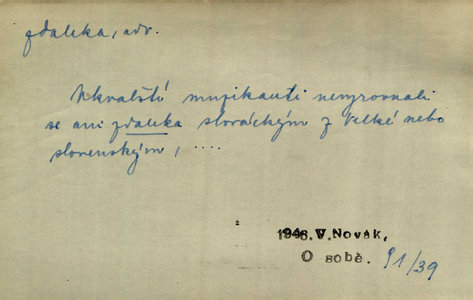 zdaleka, adv.
Ukvalští muzikanti nevyrovnali
se ani zdaleka slováckým z Velké nebo
slovenským, ....
1946.V.Novák,
O sobě. 91/39